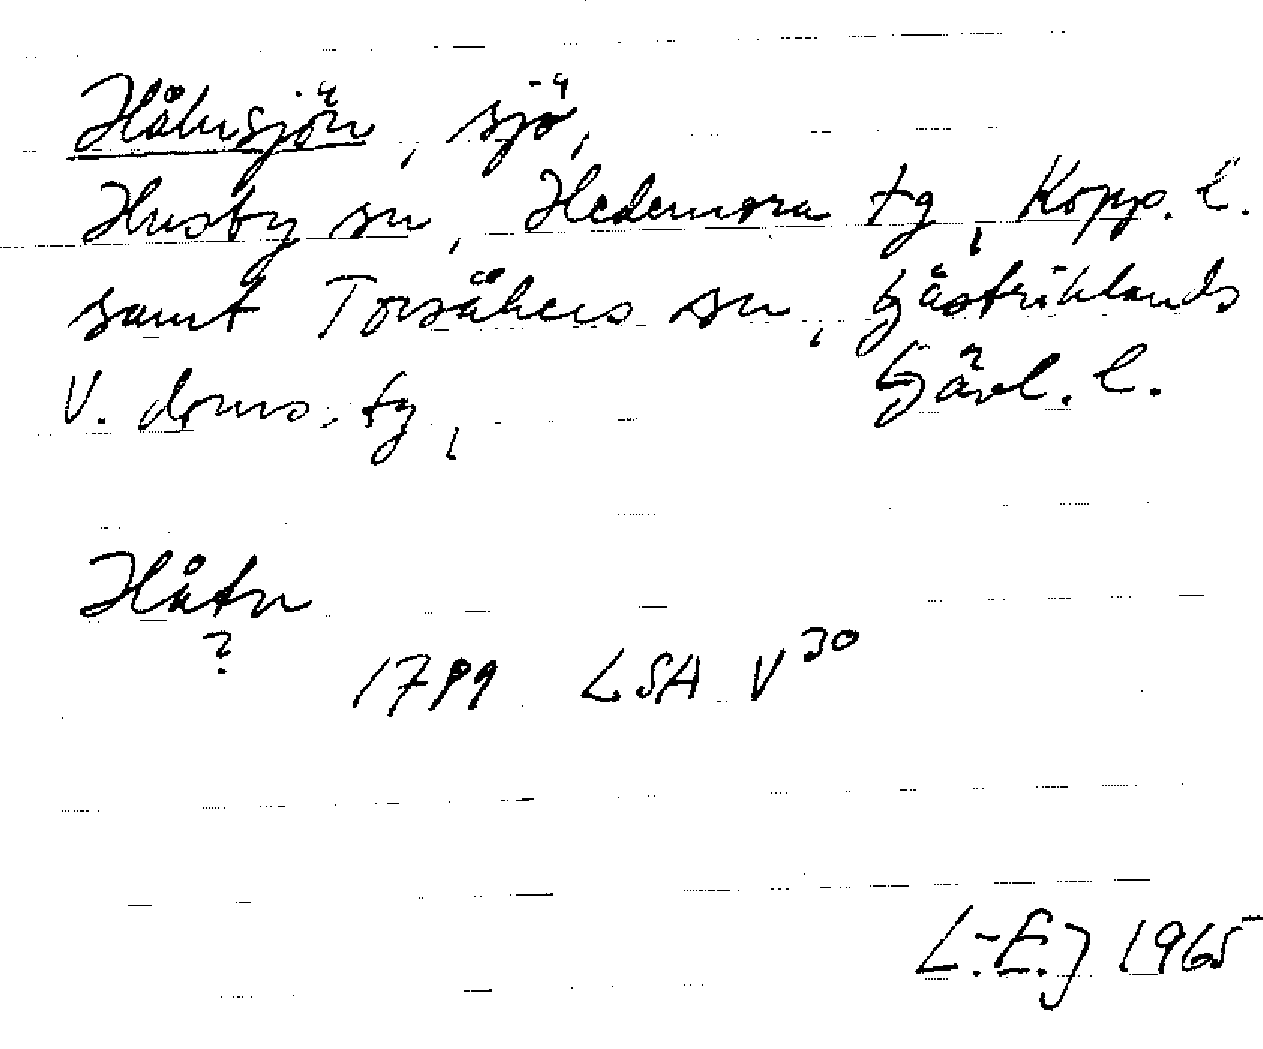 Hålnsjön, sjö,
Husby sn, Hedemora tg, Kopp. l.
samt Torsåkers sn, Gästriklands
V. doms. tg, Gävl. l.
Håtn
?
1799 LSA V30
L.-E.J 1965